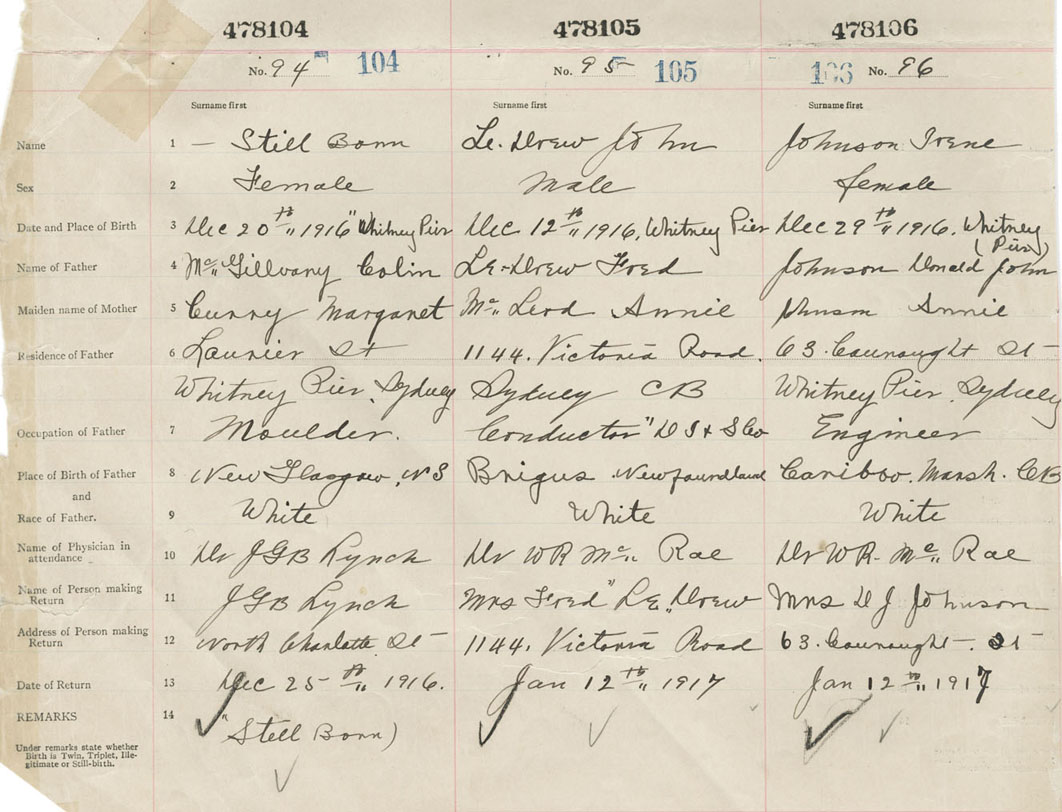 478104 478105 478106
No. 94 104 No. 95 105 106 No. 96
Surname first Surname first Surname first
Name 1 — Still Born Le. Drew John Johnson Irene
Sex 2 Female Male female
Date and Place of Birth 3 Dec 20th 1916 "Whitney Pier Dec 12th 1916, Whitney Pier Dec 29th 1916. Whitney
(Pier)
Name of Father 4 Mc Gillvary Colin Le-Drew Fred Johnson Donald John
Maiden name of Mother 5 Curry Margaret Mc Leod Annie Johnson Annie
Residence of Father 6 Laurier St 1144. Victoria Road. 63. Connaught St
Whitney Pier, Sydney Sydney CB Whitney Pier. Sydney
Occupation of Father 7 Moulder. Conductor "D I & S Co Engineer
Place of Birth of Father 8 New Glasgow, NS Brigus Newfoundland Cariboo. Marsh. CB
and
Race of Father. 9 White White White
Name of Physician in
attendance 10 Dr JGB Lynch Dr WR Mc Rae Dr WR. Mc Rae
Name of Person making
Return 11 JGB Lynch Mrs Fred" Le. Drew Mrs D J Johnson
Address of Person making
Return 12 North Charlotte St 1144. Victoria Road 63. Connaught. St
Date of Return 13 Dec 25th 1916. Jan 12th 1917 Jan 12th 1917
REMARKS 14 "Still Born)
Under remarks state whether
Birth is Twin, Triplet, Ille-
gitimate or Still-birth.